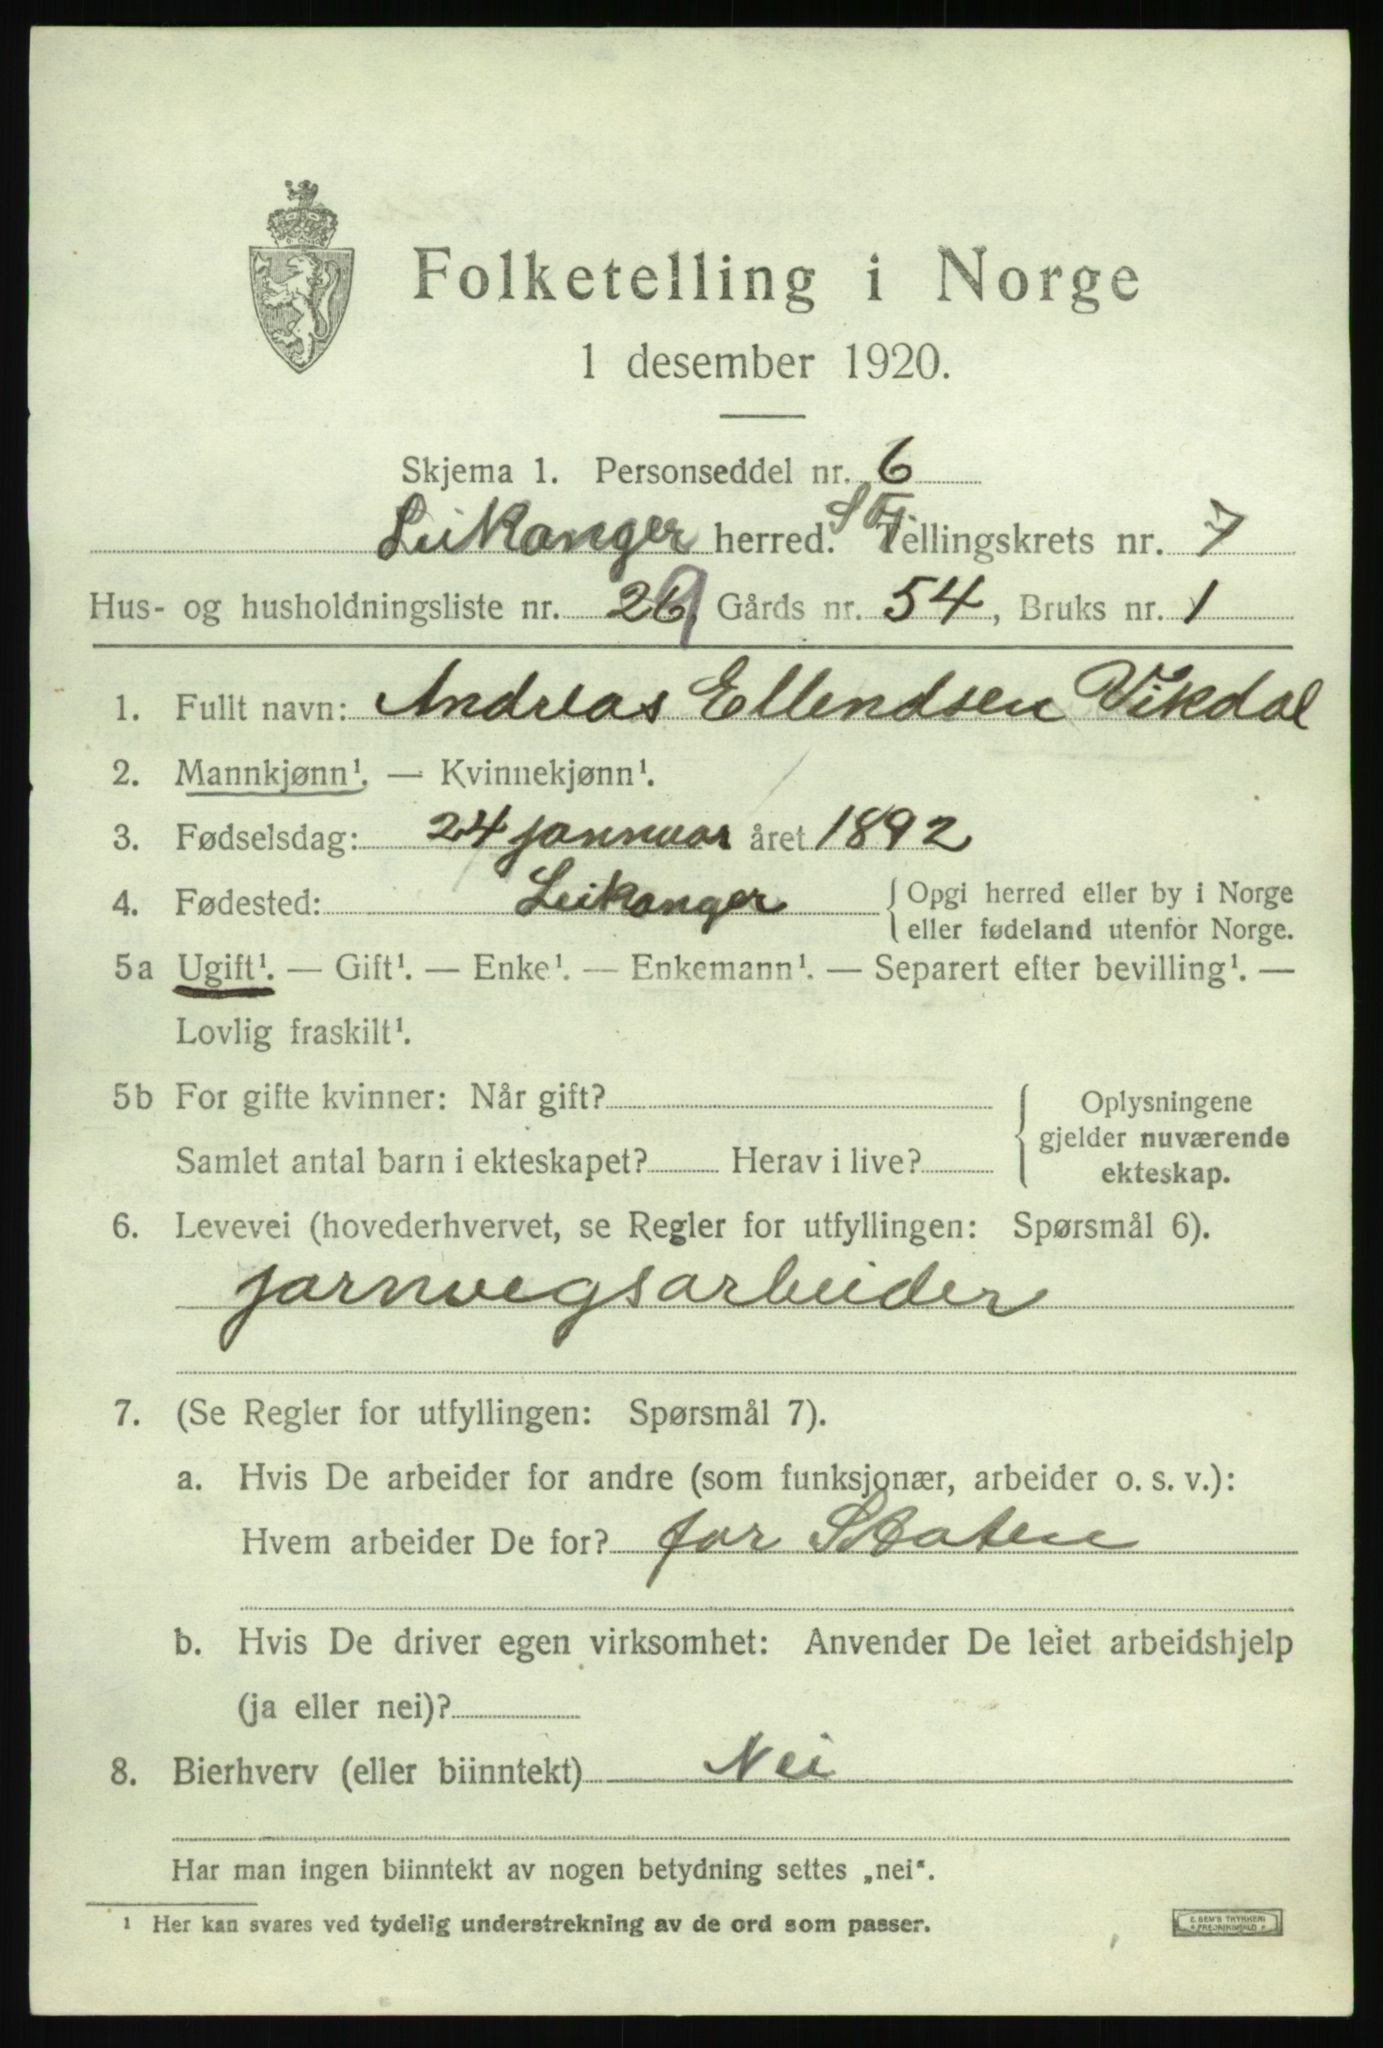 Folketelling i Norge
1 desember 1920.
Skjema 1. Personseddel nr. 6
Leikanger herred. SF. Tellingskrets nr. 7
Hus- og husholdningsliste nr. 26, Gårds nr. 54, Bruks nr. 1
1. Fullt navn: Andreas Ellendsen Vikdal
2. Mannkjønn¹. — Kvinnekjønn¹.
3. Fødselsdag: 24 januar året 1892
4. Fødested: Leikanger { Opgi herred eller by i Norge
eller fødeland utenfor Norge.
5a Ugift¹. — Gift¹. — Enke¹. — Enkemann¹. — Separert efter bevilling¹. —
Lovlig fraskilt¹.
5b For gifte kvinner: Når gift?
Samlet antal barn i ekteskapet? Herav i live?
{ Oplysningene
gjelder nuværende
ekteskap.
6. Levevei (hovederhvervet, se Regler for utfyllingen: Spørsmål 6).
jarnvegsarbeider
7. (Se Regler for utfyllingen: Spørsmål 7).
a. Hvis De arbeider for andre (som funksjonær, arbeider o. s. v.):
Hvem arbeider De for? for Staten
b. Hvis De driver egen virksomhet: Anvender De leiet arbeidshjelp
(ja eller nei)?
8. Bierhverv (eller biinntekt) Nei
Har man ingen biinntekt av nogen betydning settes „nei“.
¹ Her kan svares ved tydelig understrekning av de ord som passer.